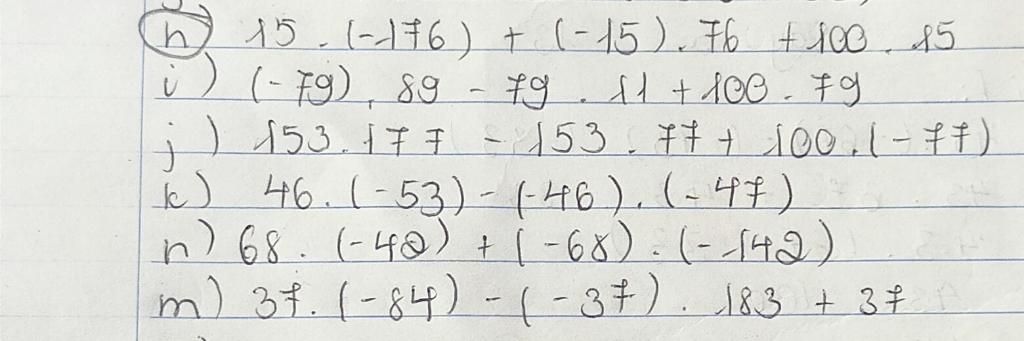 h) 15 . (-176) + (-15) . 76 + 100 . 15
i) (-79) . 89 - 79 . 11 + 100 . 79
j) 153 . 177 - 153 . 77 + 100 . (-77)
k) 46 . (-53) - (-46) . (-47)
n) 68 . (-42) + (-68) . (-142)
m) 37 . (-84) - (-37) . 183 + 37